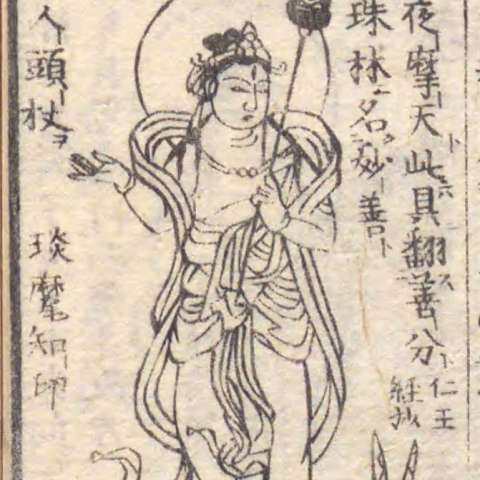 夜摩天此ニハ具翻善分ト仁王経抄
珠林ニ名ク妙善ト
人頭杖ヲ
琰魔知印